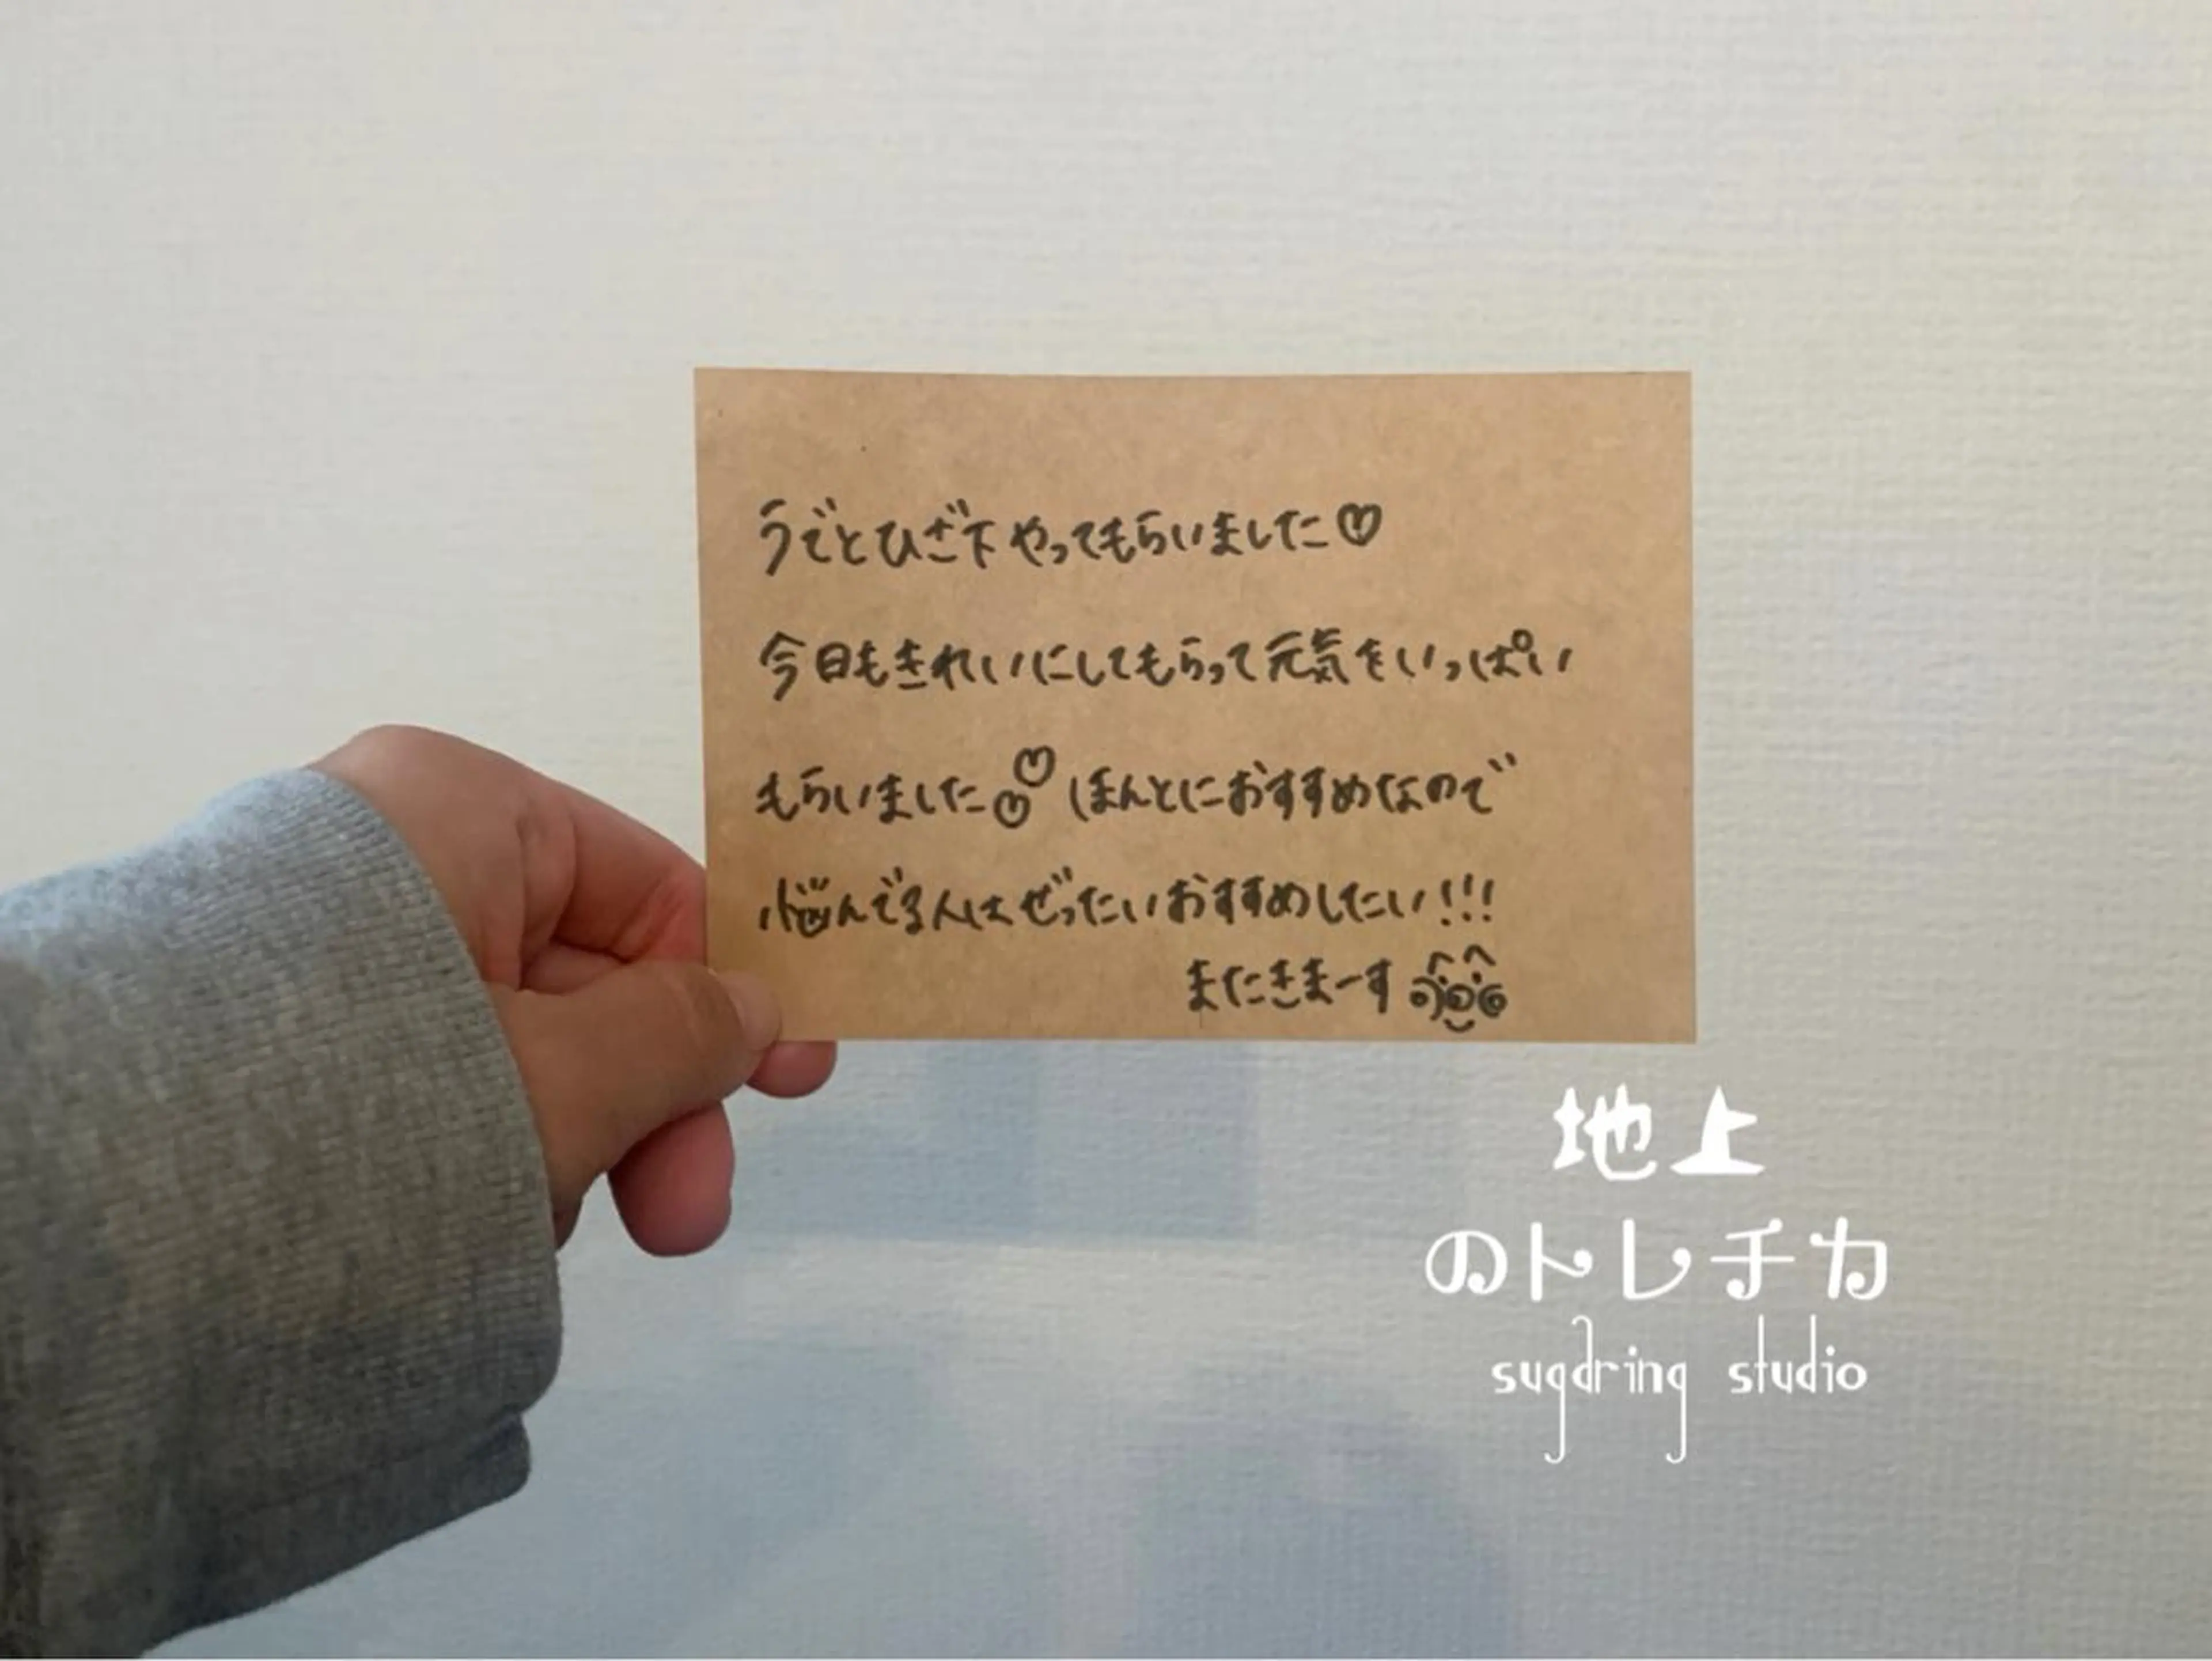 うでとひざ下やってもらいました♡
今日もきれいにしてもらって元気をいっぱい
もらいました♡♡ほんとにおすすめなので
悩んでる人はぜったいおすすめしたい!!!
またきまーす
地上
のトレチカ
sugaring studio